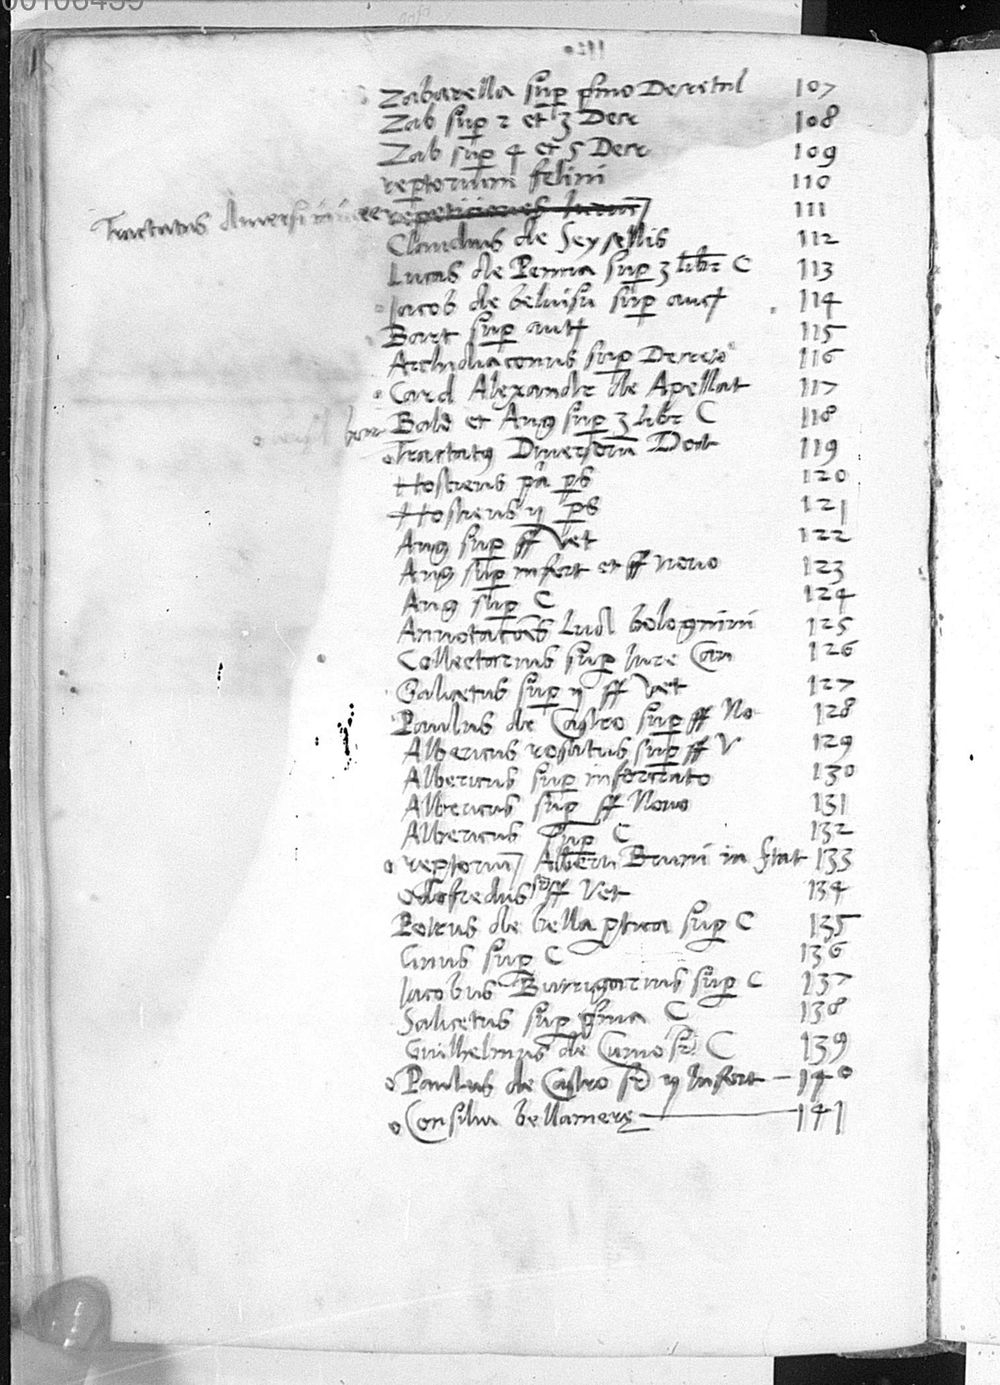 00106459
Zabarella sup pmo Decretal 107
Zab sup 2 et 3 Decr 108
Zab sup 4 et 5 Decr 109
reptorium felini 110
Tractatus diversi repeticiones 111
Claudius de Seysellis 112
Lucas de Penna sup 3 libr C 113
Jacob de belvisu sup auct 114
Bart sup autt 115
Archidiaconus sup Decreto 116
Card Alexandr de Apellat 117
Bald et Ang sup 3 libr C 118
Tractatus Diversorum Doct 119
Hostiens pa ps 120
Hostiens ij ps 121
Ang sup ff Vet 122
Ang sup infort et ff novo 123
Ang sup C 124
Annotatões Lud bolognini 125
Collectarius sup Jure Can 126
Salicetus sup ij ff Vet 127
Paulus de Castro sup ff No 128
Albericus rosatus sup ff V 129
Albericus sup infortiato 130
Albericus sup ff Novo 131
Albericus sup C 132
reptorium Alberti Bruni in stat 133
Odofredus sr ff Vet 134
Petrus de bella ptica sup C 135
Cinus sup C 136
Jacobus Butrigarius sup C 137
Salicetus sup pma C 138
Guilhelmus de Cuneo sr C 139
Paulus de Castro sr ij Infort 140
Consilia bellamerę 141